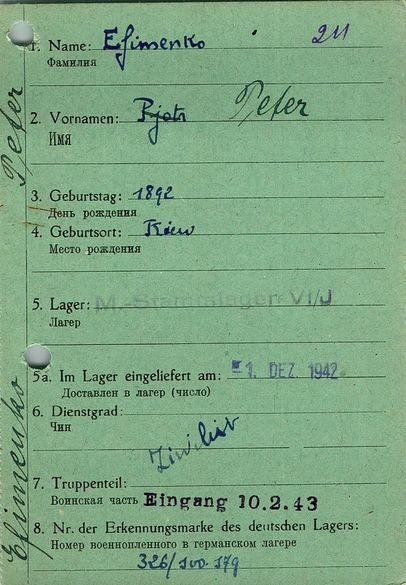 1. Name: Efimenko 211
Фамилия
2. Vornamen: Pjotr Peter
Имя
3. Geburtstag: 1892
День рождения
4. Geburtsort: Kiew
Место рождения
5. Lager: M.-Stammlager VI/J
Лагер
5a. Im Lager eingeliefert am: -1. DEZ. 1942
Доставлен в лагер (число)
6. Dienstgrad:
Чин
Zivilist
7. Truppenteil:
Воинская часть Eingang 10.2.43
8. Nr. der Erkennungsmarke des deutschen Lagers:
Номер военнопленного в германском лагере
326/
Efimenko Peter